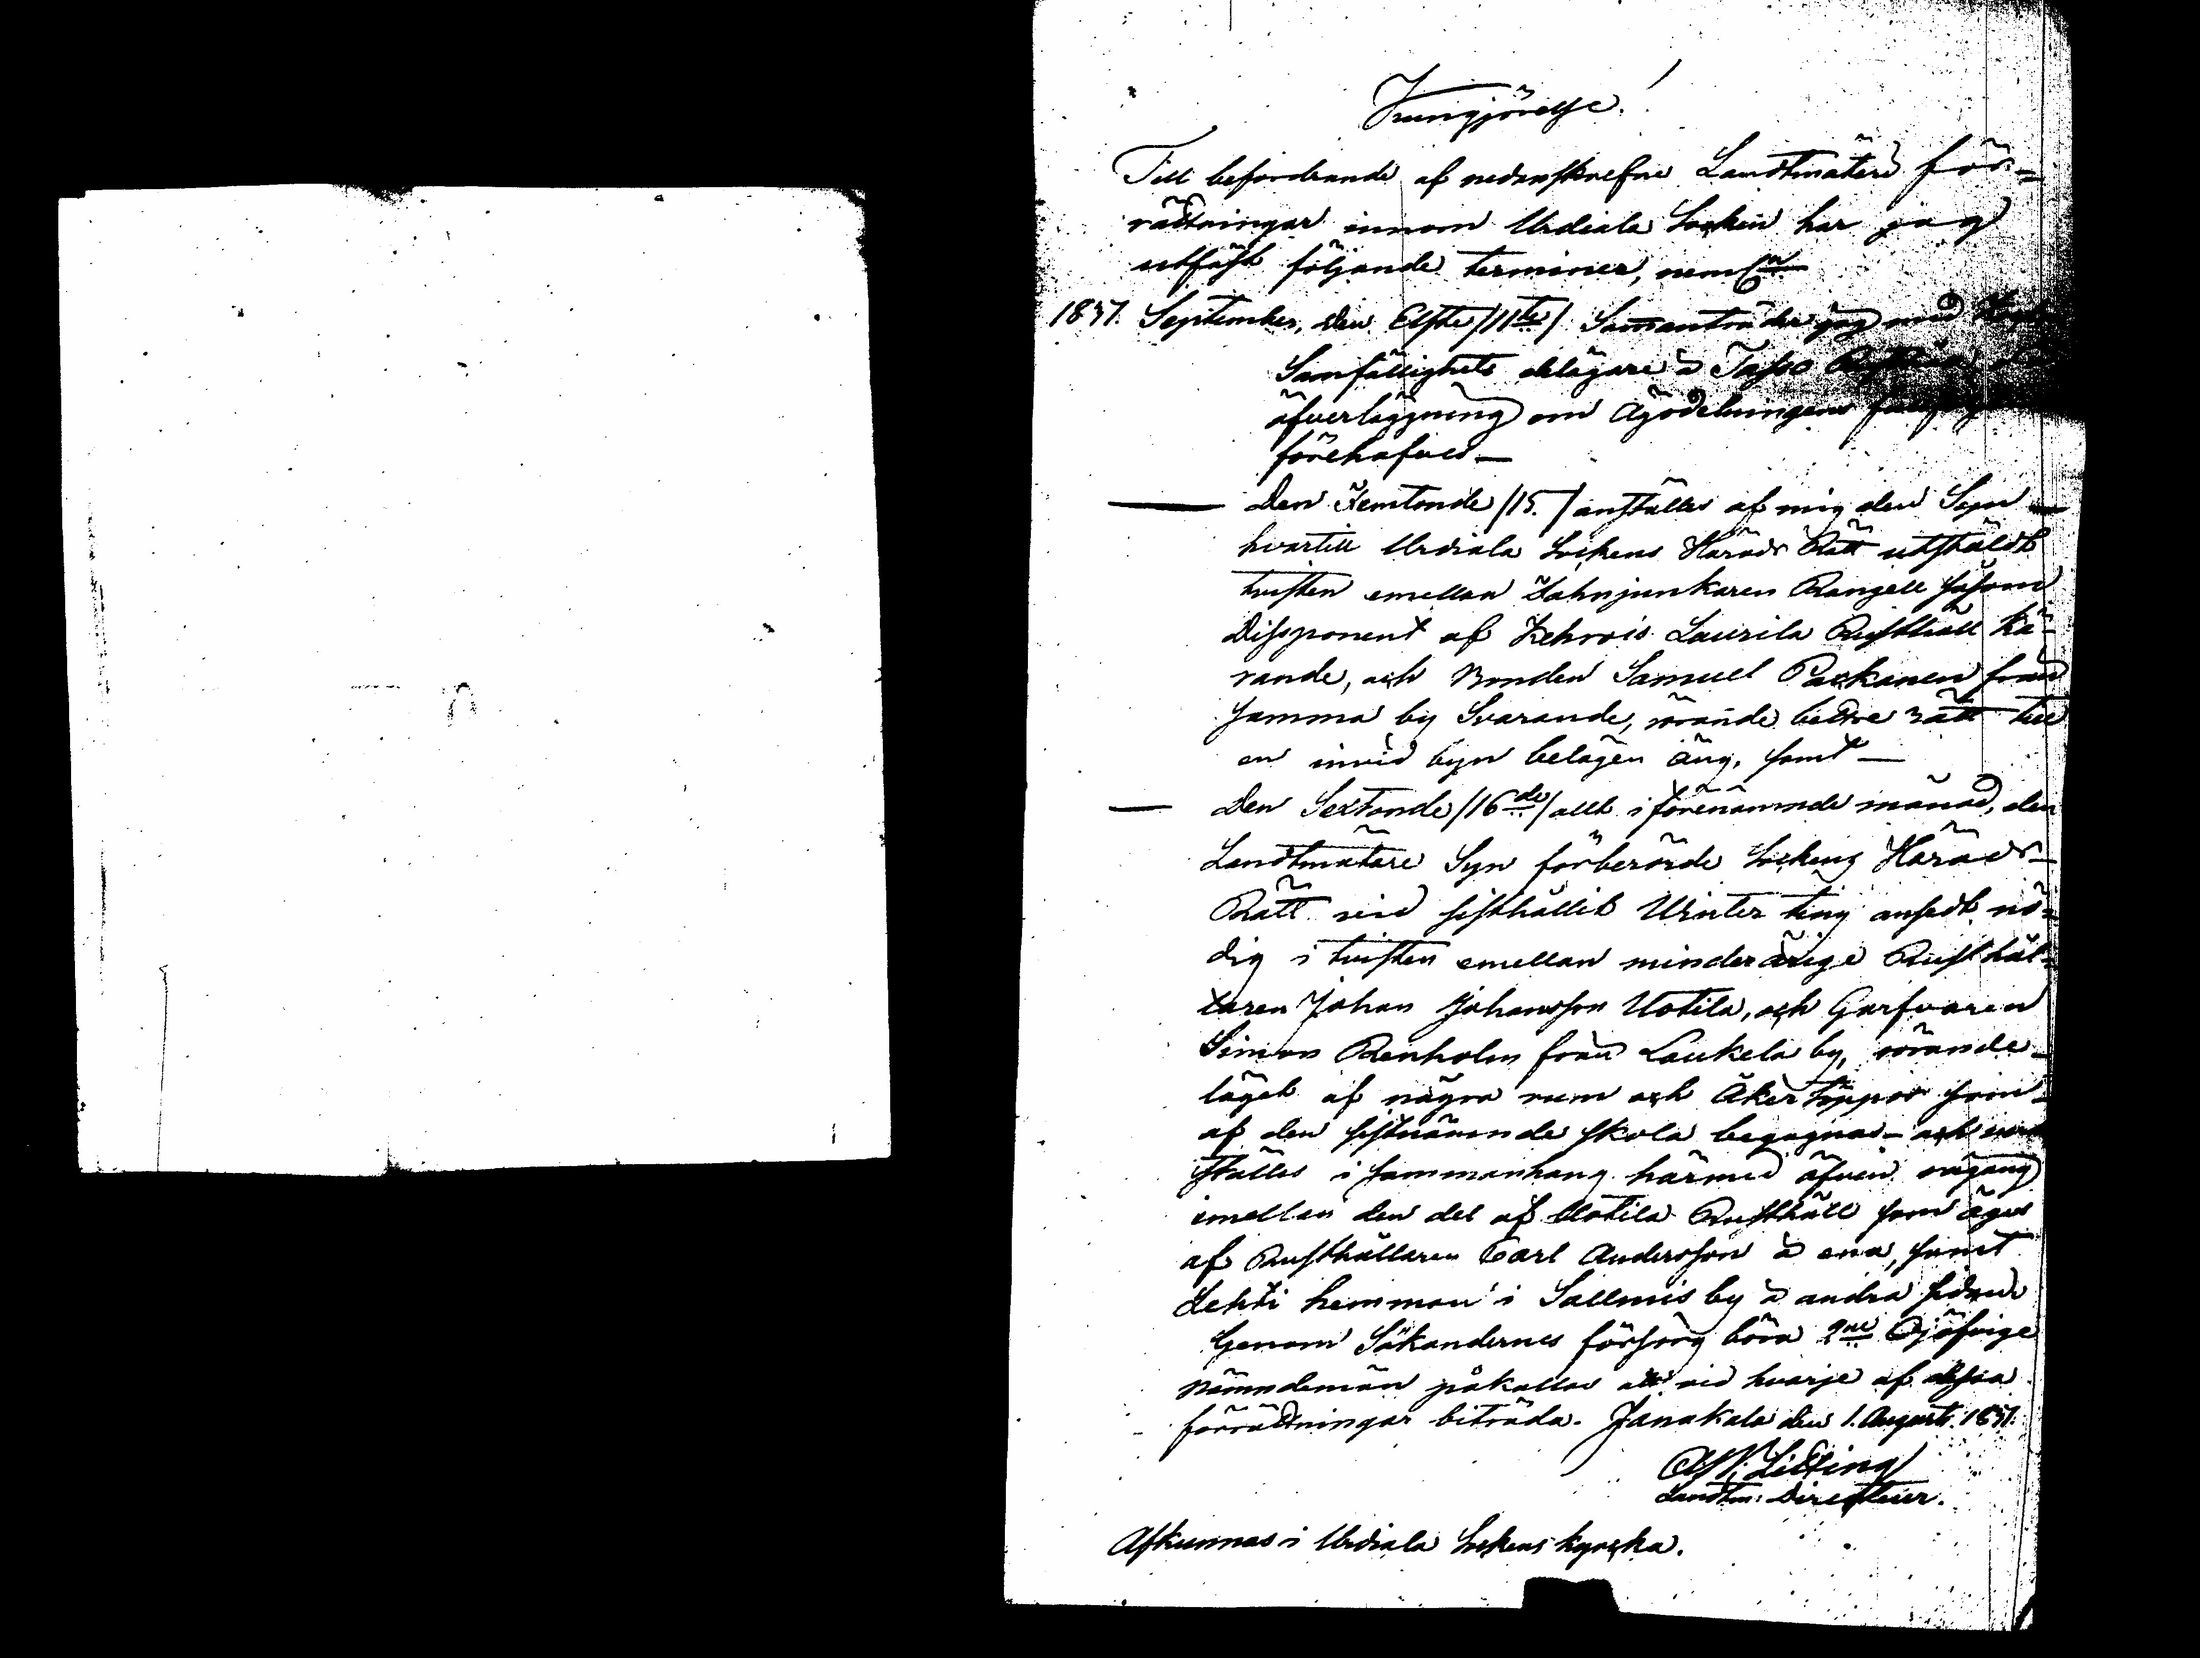 Kungjörelse!
Till befordrande af nedanskrefne Landtmäteri för-
rättningar innom Urdiala Socken har jag
utsatt följande terminer, neml.
1837. September, den Elfte /11te/ Samanträder jag med
Samfällighets delägare å Tapso
öfverläggning om Ägodelningens
förehafves —
— Den Femtonde /15./ anställes af mig den Syn
hvartill Urdiala Sockens Härads Rätt utstäldt
tvisten emellan Fahnjunkaren Rangell såsom
Dissponent af Kehrois Laurila Rusthåll Kä-
rande, och Bonden Samuel Packanen från
Jamma by Svarande, rörande bettre rätt till
en invid byn belägen Äng, samt —
— Den Sextonde /16de/ allt i förenämnde månad, den
Landtmätare Syn förberörde Sockens Härads-
Rätt vid sisthållit Winter ting ansedt nö-
dig i tvisten emellan minderårige Rusthål-
laren Johan Johansson Uotila, och Garfvaren
Simon Renholm från Laukela by, rörande
läget af några rum och Åkertäppor som
af den sistnämnde skola begagnas — och
ställes i sammanhang härmed äfven rågång
emellan den del af Uotila Rusthåll som äges
af Rusthållaren Carl Andersson å ena, samt
Lehti hemman i Sallmis by å andra sidan
Genom Sökandernes försorg böra 2ne Ojäfvige
Nämndemän påkallas att vid hvarje af dessa
förrättningar biträda. Janakala den 1. Augusti 1837.
Landtm: Directeur.
Afkunnas i Urdiala Sockens kyrcka.